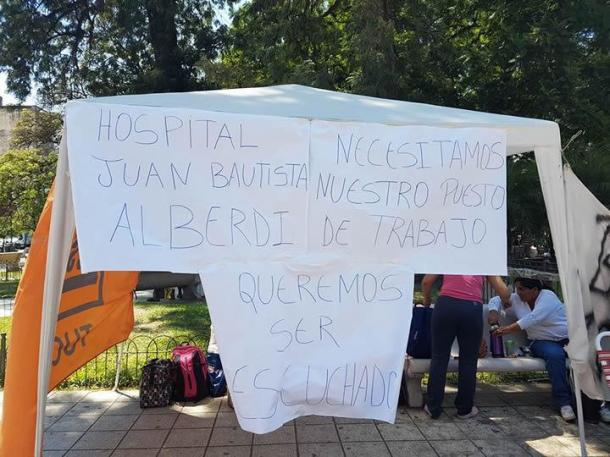 HOSPITAL
JUAN BAUTISTA
ALBERDI
NECESITAMOS
NUESTRO PUESTO
DE TRABAJO
QUEREMOS
SER
ESCUCHADO